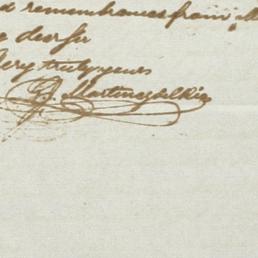 d remembrances from, M
e dear Sir
Very truly yours
P. Martinez del Rio